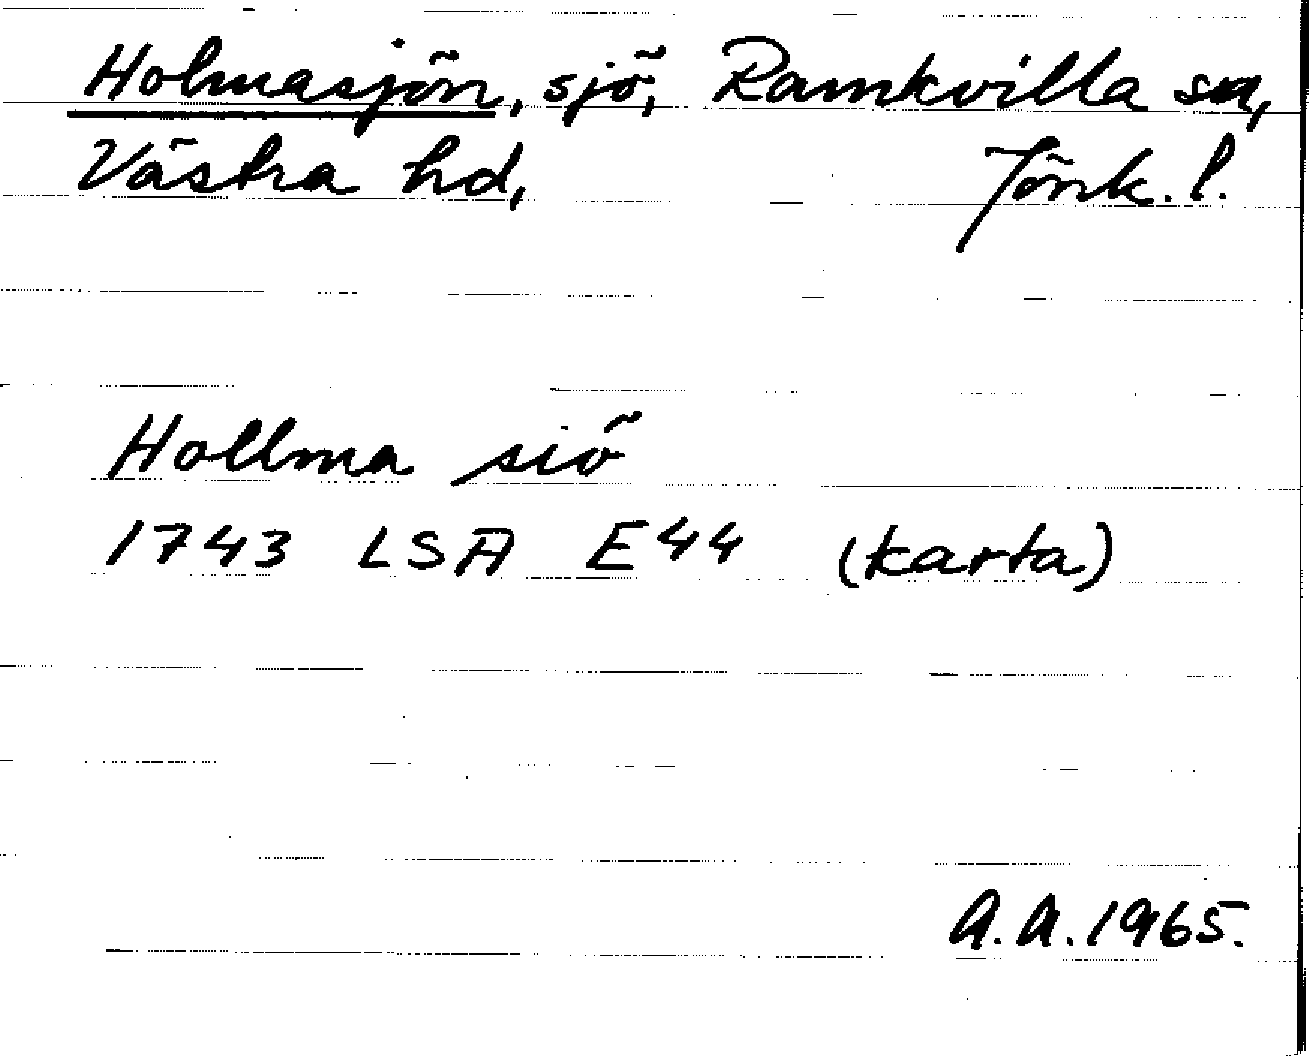 Holmasjön, sjö, Ramkvilla sn,
Västra hd, Jönk. l.
Hollma siö
1743 LSA E44 (karta)
A.A. 1965.